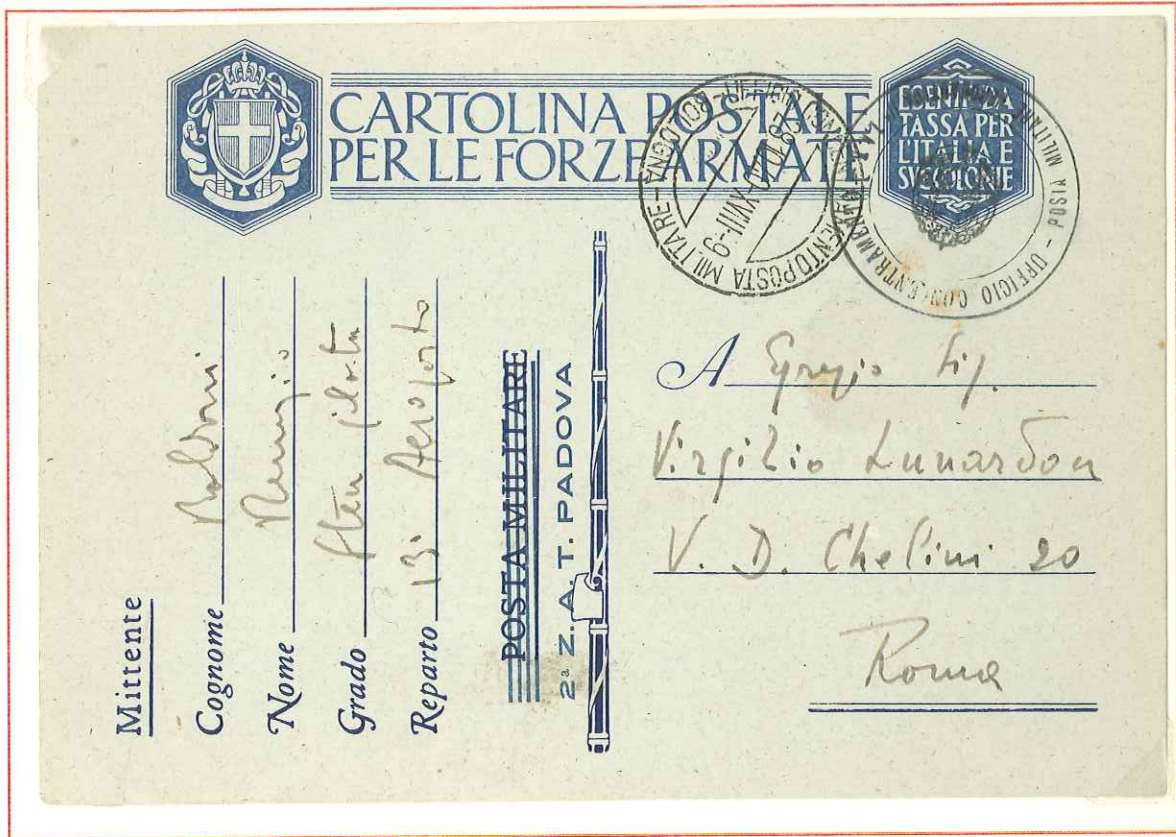 CARTOLINA POSTALE
PER LE FORZE ARMATE
ESENTE DA
TASSA PER
L'ITALIA E
SUE COLONIE
UFFICIO CONCENTRAMENTO POSTA MILITARE - BOLOGNA -
28 10 40 - XVIII - 9
POSTA MILITARE - UFFICIO CONCENTRAMENTO
Mittente
Cognome
Nome
Grado Sten pilota
Reparto 13° Aeroporto
POSTA MILITARE
2ª Z. A. T. PADOVA
A Egregio Sig.
Virgilio Lunardon
V. D. Chelini 20
Roma